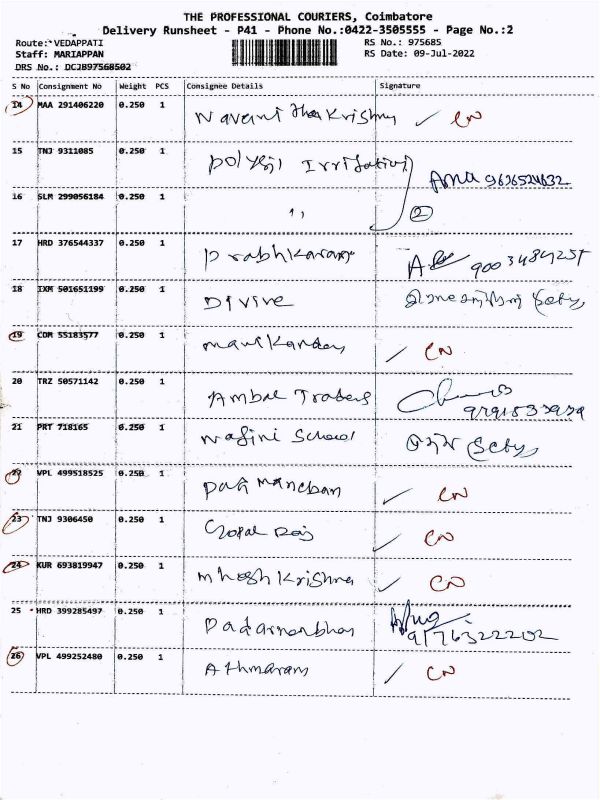 THE PROFESSIONAL COURIERS, Coimbatore
Delivery Runsheet - P41 - Phone No.:0422-3505555 - Page No.:2
Route: VEDAPPATI RS No.: 975685
Staff: MARIAPPAN RS Date: 09-Jul-2022
DRS No.: DCJB97568502
S No Consignment No Weight PCS Consignee Details Signature
14 MAA 291406220 0.250 1 ✓ CN
15 TNJ 9311085 0.250 1 9636524632
16 SLM 299056184 0.250 1 ,, 2
17 HRD 376544337 0.250 1 Prabhkaram
18 IXM 501651199 0.250 1 Divine
19 COM 55183577 0.250 1 Manikandan ✓ CN
20 TRZ 50571142 0.250 1 Ambal Traders
21 PRT 718165 0.250 1 School
22 VPL 499518525 0.250 1 ✓ CN
23 TNJ 9306450 0.250 1 Gopal Raj ✓ CN
24 KUR 693819947 0.250 1 Krishna ✓ CN
25 HRD 399285497 0.250 1 9176322202
26 VPL 499252480 0.250 1 Athmaram ✓ CN